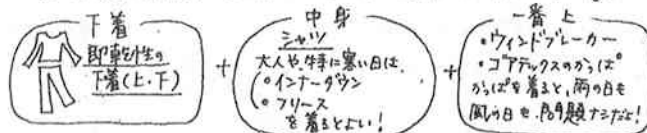 下着
即乾性の
下着(上・下)
+
中身
シャツ
大人や、特に寒い日は、
・インナーダウン
・フリース
を着るとよい!
+
一番上
・ウィンドブレーカー
・ゴアテックスのかっぱ
かっぱを着ると、雨の日も
風の日も、問題ナシだよ!